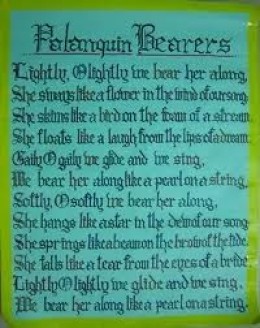 Palanquin Bearers
Lightly, O lightly we bear her along,
She sways like a flower in the wind of our song.
She skims like a bird on the foam of a stream
She floats like a laugh from the lips of a dream.
Gaily O gaily we glide and we sing,
We bear her along like a pearl on a string.
Softly, O softly we bear her along,
She hangs like a star in the dew of our song
She springs like a beam on the brow of the tide,
She falls like a tear from the eyes of a bride
Lightly O lightly we glide and we sing,
We bear her along like a pearl on a string.